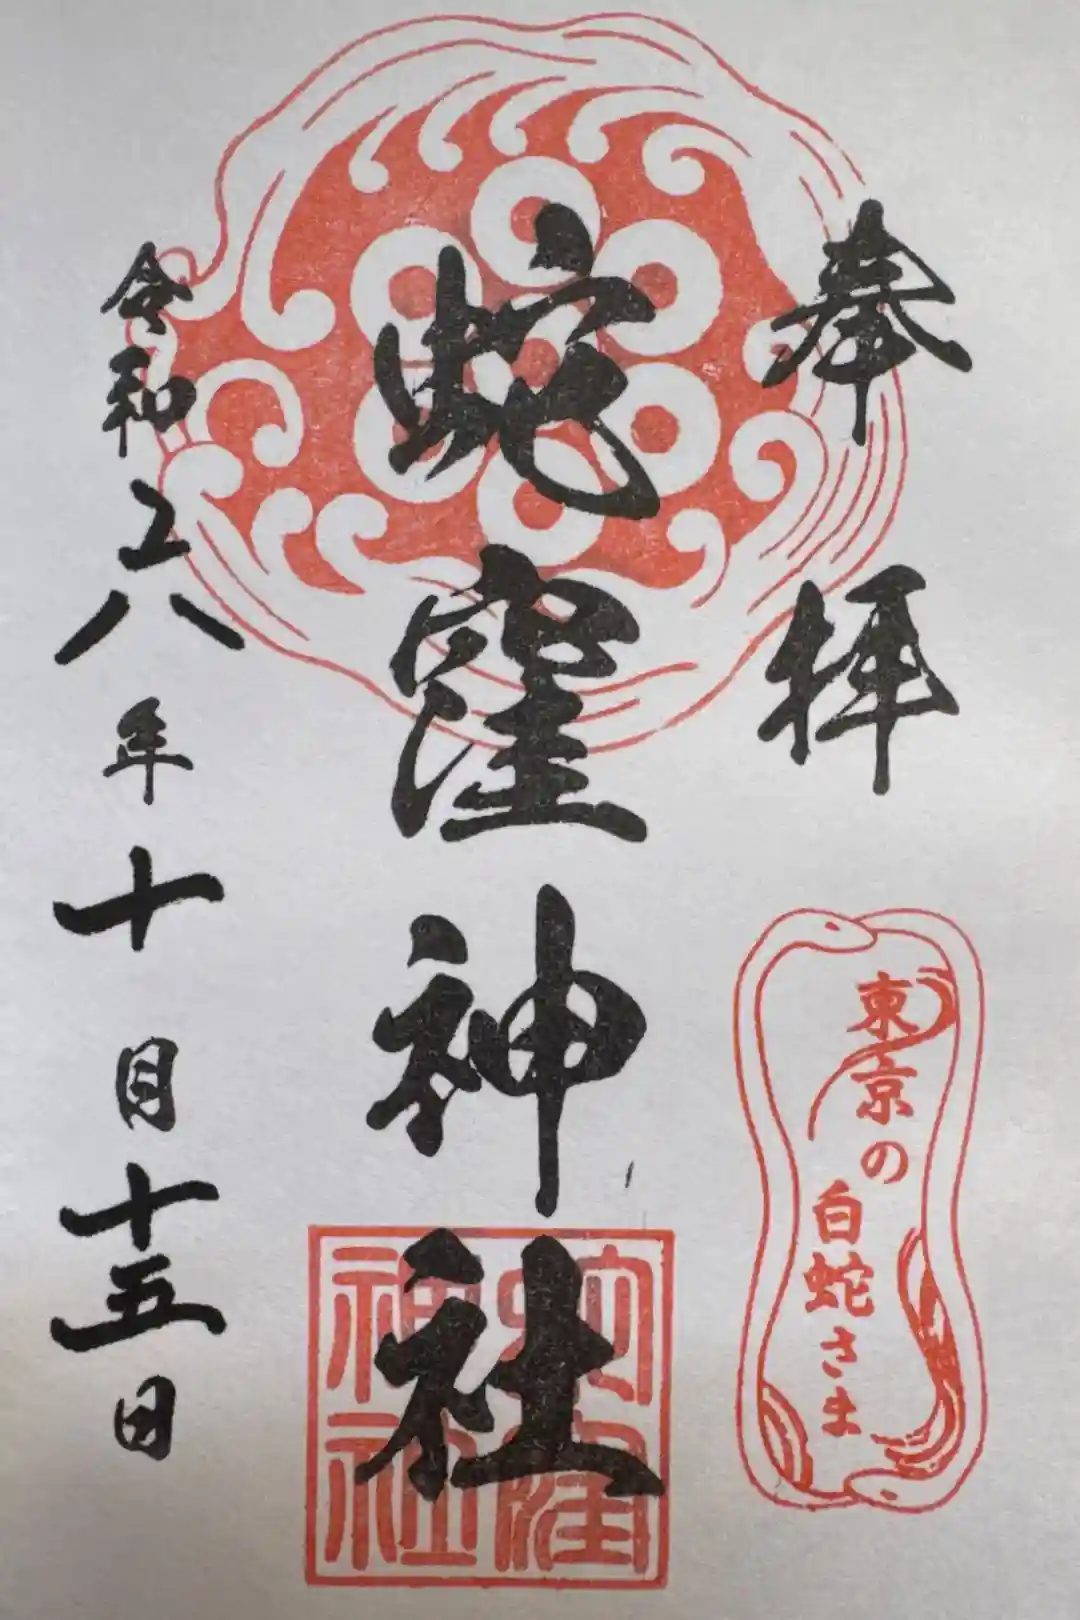 奉拝
東京の
白蛇さま
蛇窪神社
蛇窪
神社
令和六年十月十五日